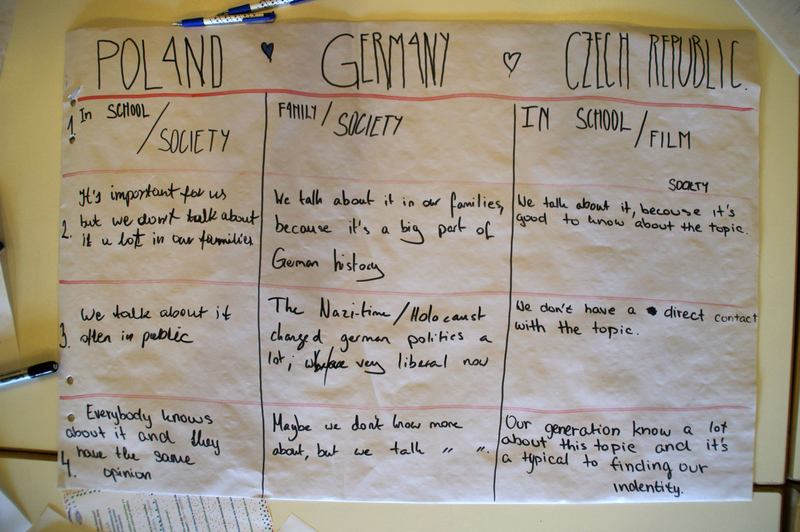 POLAND GERMANY CZECH REPUBLIC.
1. In SCHOOL / SOCIETY
FAMILY / SOCIETY
IN SCHOOL / FILM
SOCIETY
2. It's important for us
but we don't talk about
it a lot in our families
We talk about it in our families,
because it's a big part of
German history
We talk about it, because it's
good to know about the topic.
3. We talk about it
often in public
The Nazi-time / Holocaust
changed german politics a
lot; very liberal now
We don't have a direct contact
with the topic.
4. Everybody knows
about it and they
have the same
opinion
Maybe we don't know more
about, but we talk " ".
Our generation know a lot
about this topic and it's
a typical to finding our
indentity.